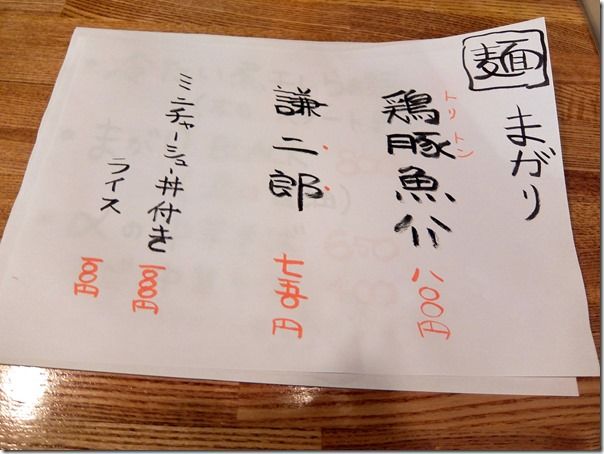 麺
まがり
トリトン
鶏豚魚介 八〇〇円
謙二郎 七五〇円
ミニチャーシュー丼付き
ライス 一〇〇円